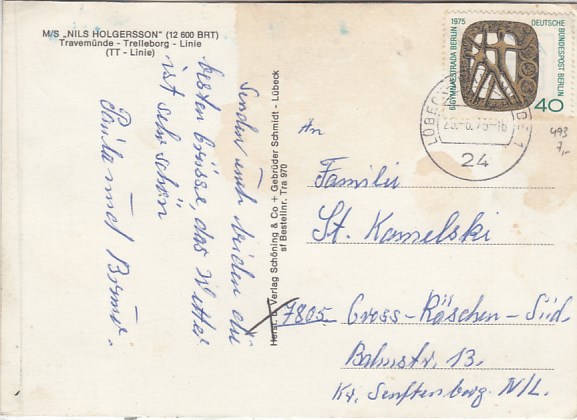 M/S „NILS HOLGERSSON" (12 600 BRT)
Travemünde - Trelleborg - Linie
(TT - Linie)
Senden euch beiden die
besten Grüsse, das Wetter
ist sehr schön
Paula und Bruno.
Herst. u. Verlag Schöning & Co + Gebrüder Schmidt - Lübeck
sf Bestellnr. Tra 970
6. GYMNAESTRADA BERLIN 1975
DEUTSCHE BUNDESPOST BERLIN
40
24
493
7,-
An
Familie
St. Kamelski
7805 Gross-Räschen-Süd
Bahnstr. 13.
Kr. Senftenberg N/L.